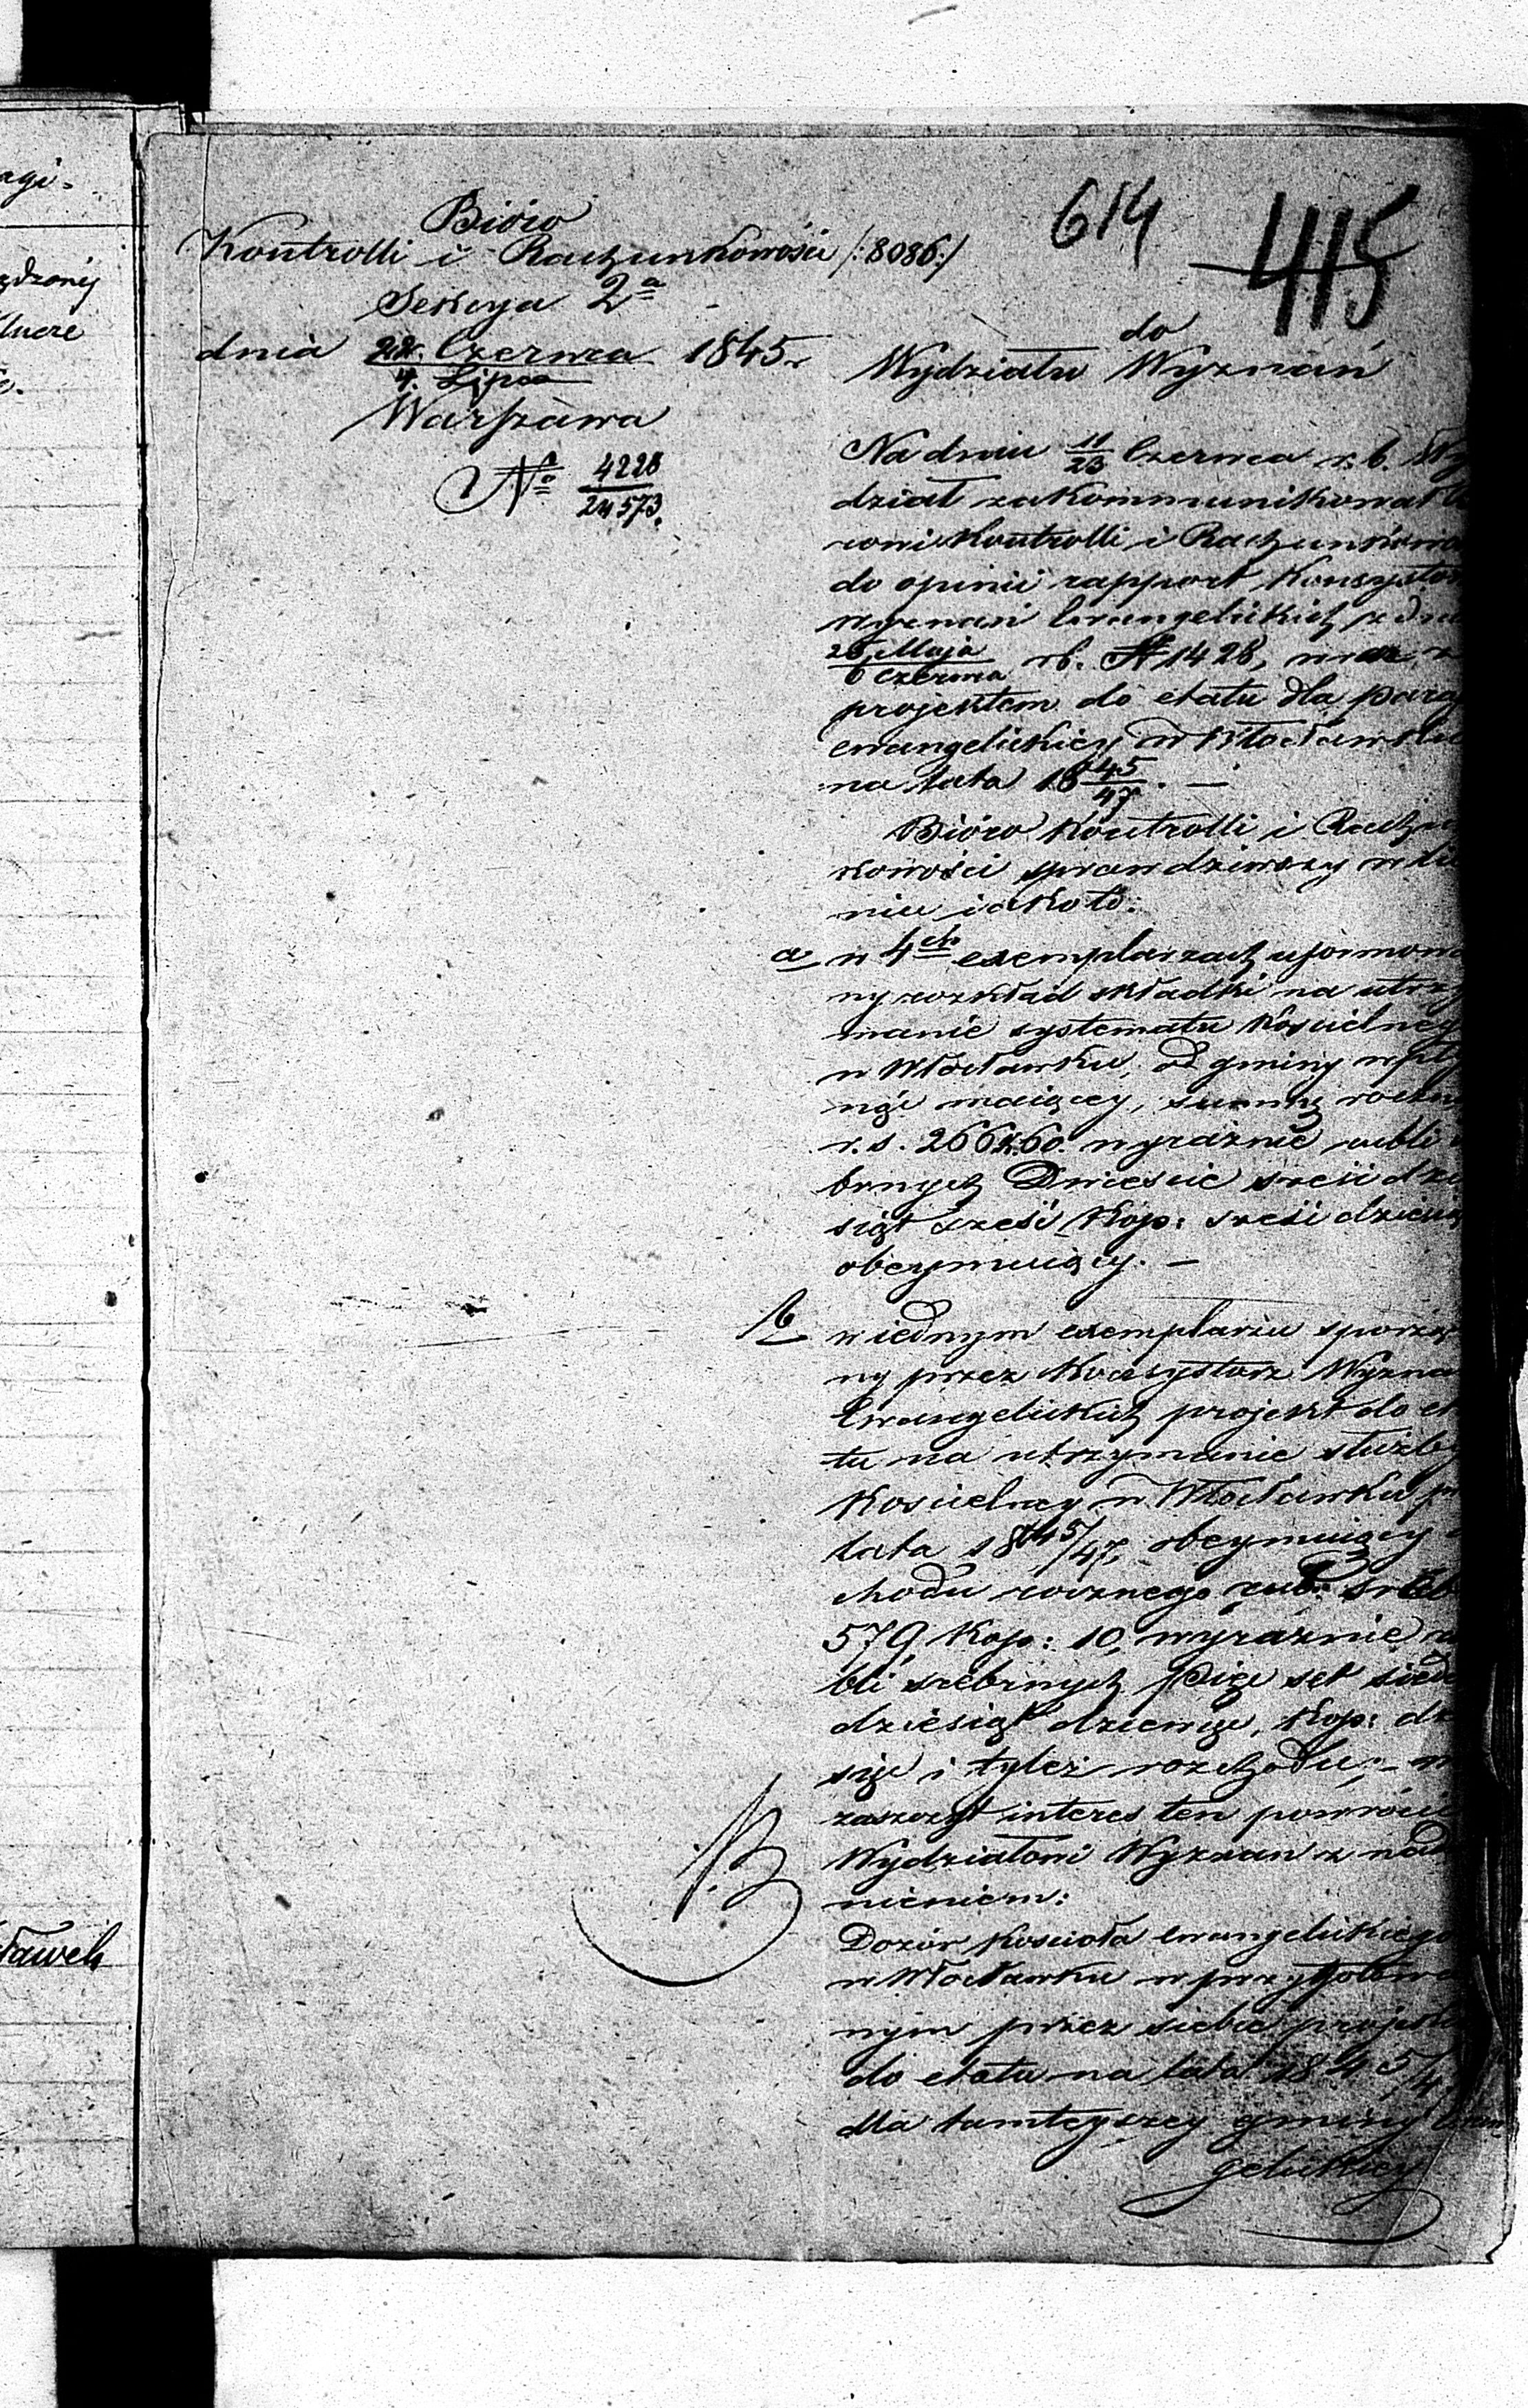 agi-
ądzony
Bióro
Kontrolli i Rachunkowości /:8086:/
Sekcya 2a
dnia 22. Czerwca 1845 r.
4. Lipca
Warszawa
No 4228
24573.
614
415
do
Wydziału Wyznań
Na dniu 11/23 Czerwca r. b. Wy
dział zakommunikował Bi
rowi Kontrolli i Rachunkowo
do opinii rapport Konsystor
wyznań Ewangelickich z dnia
25 Maja
6 Czerwca rb. N 1428, wraz z
projektem do etatu dla para
ewangelickiey w Włocławku
na lata 1845/47. —
Bióro Kontrolli i Rachun
kowości sprawdziwszy
nie iakoto:
a w 4ch exemplarzach uformowa
ny rozkład składki na utrzy
manie systematu kościelnego
w Włocławku, od gminy wpły
nąć maiącey, summę roczną
r. s. 266 k. 60. wyraźnie rubli
brnych Dwieście sześćdzie
siąt sześć Kop: sześćdziesiąt
obeymuiący. —
b w iednym exemplarzu sporzą
ny przez Konsystorz Wyznań
Ewangelickich projekt do eta
tu na utrzymanie służby
Kościelney w Włocławku
lata 1845/47, obeymuiący
chodu rocznego rub: sreb
579 Kop: 10, wyraźnie ru
bli srebrnych Pięćset siedm
dziesiąt dziewięć, Kop: dzie
sięć i tyleż rozchodu; —
zaszczyt interes ten powrócić
Wydziałowi Wyznań z nad
mieniem:
Dozór Kościoła Ewangelickiego
w Włocławku w przygotowa
nym przez siebie projekcie
do etatu na lata 1845/4
dla tamteyszey gminy Ewan
gelickiey
ławek